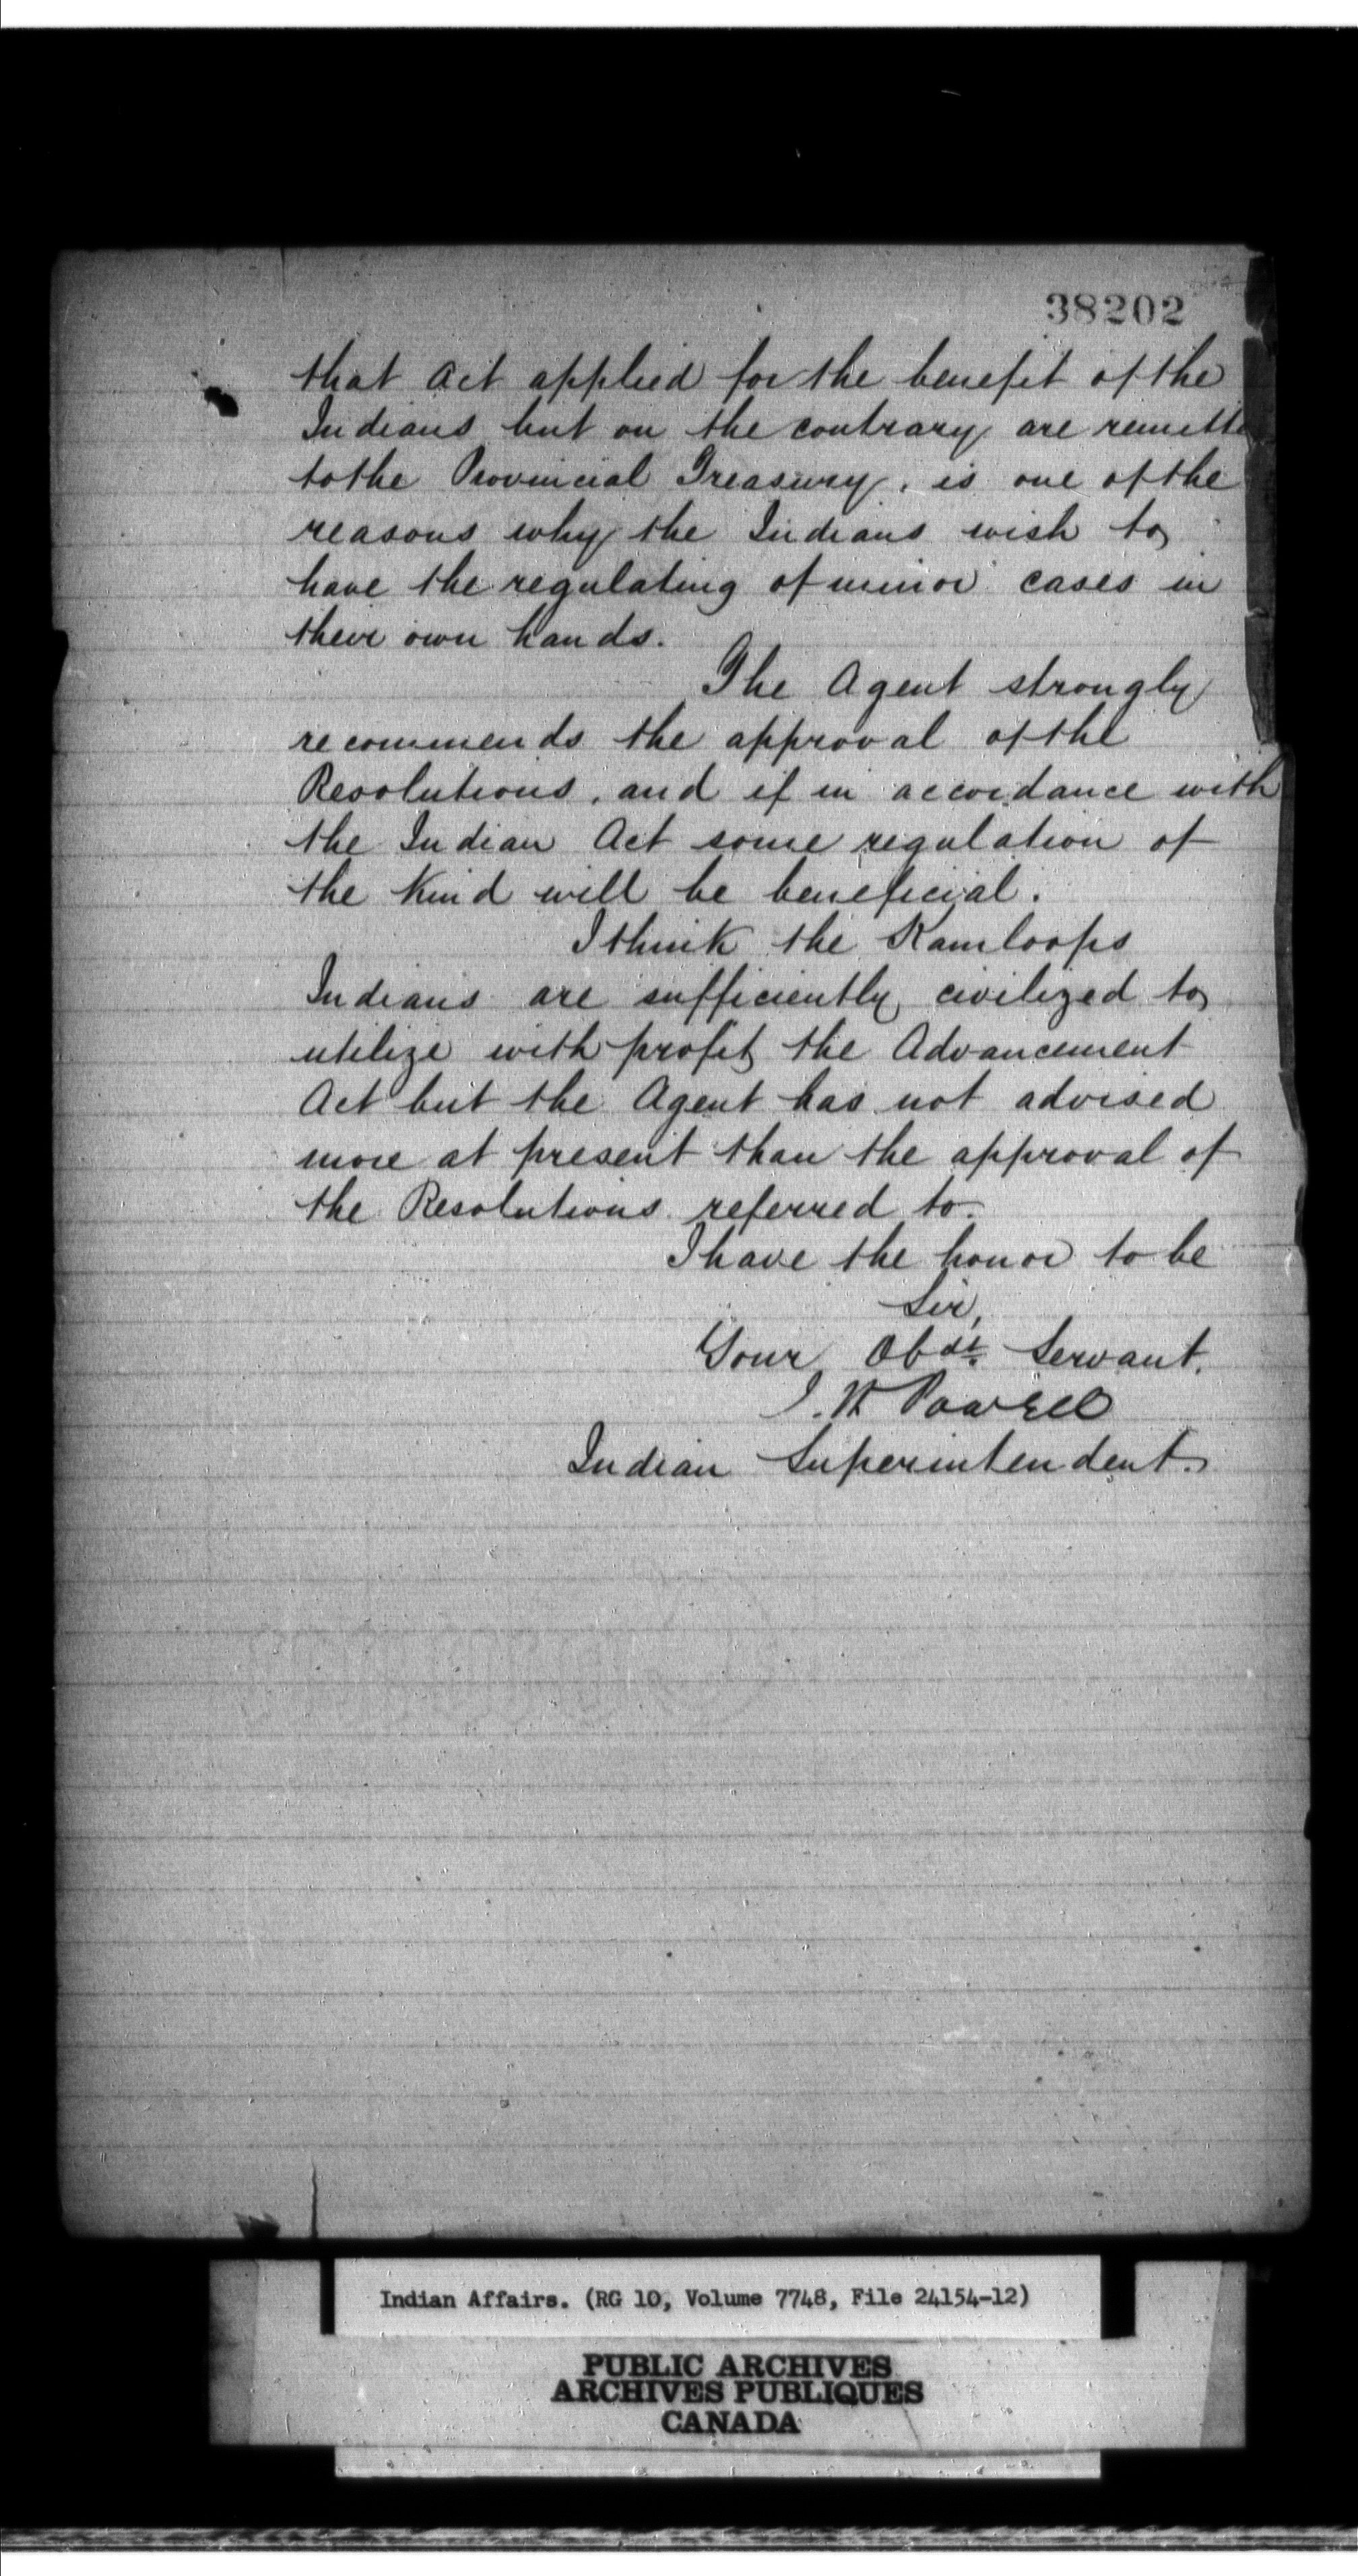 38202
that Act applied for the benefit of the
Indians but on the contrary are remitte
to the Provincial Treasury, is one of the
reasons why the Indians wish to
have the regulating of minor cases in
their own hands.
The Agent strongly
recommends the approval of the
Resolutions, and if in accordance with
the Indian Act some regulation of
the kind will be beneficial.
I think the Kamloops
Indians are sufficiently civilized to
utilize with profit the Advancement
Act but the Agent has not advised
more at present than the approval of
the Resolutions referred to.
I have the honor to be
Sir,
Your Obdt. Servant.
I. W Powell
Indian Superintendent.
Indian Affairs. (RG 10, Volume 7748, File 24154-12)
PUBLIC ARCHIVES
ARCHIVES PUBLIQUES
CANADA